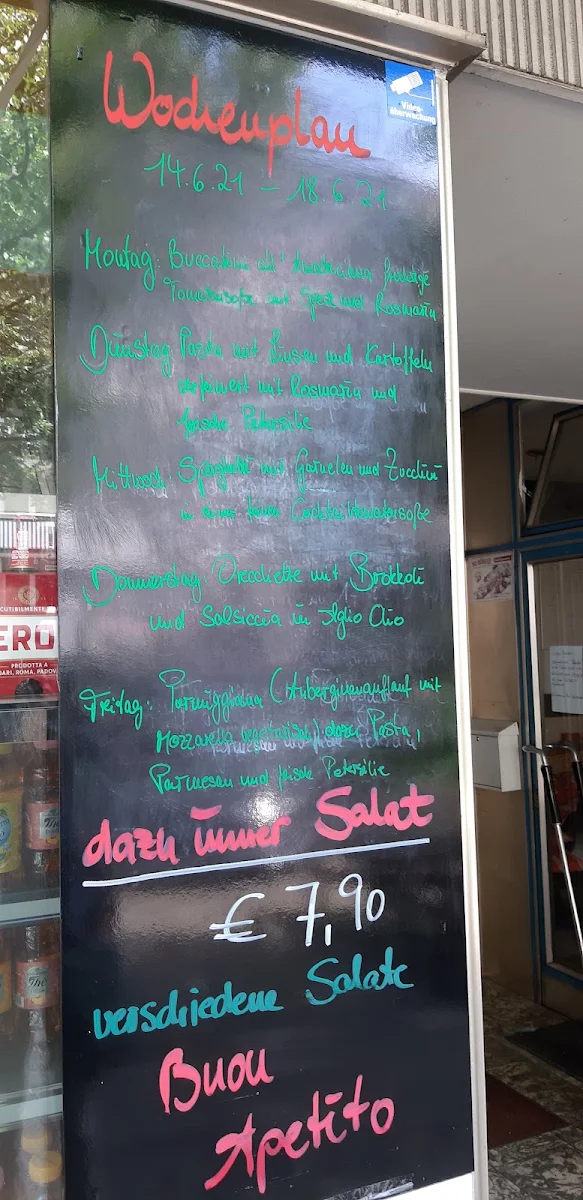 Wochenplan
Video-
überwachung
14.6.21 – 18.6.21
Montag: Bucatini all'
Tomatensoße mit Speck und Rosmarin
Dienstag: Pasta mit Linsen und Kartoffeln
verfeinert mit Rosmarin und
frische Petersilie
Mittwoch: Spaghetti mit Garnelen und Zucchini
in einer feinen Cocktailtomatensoße
Donnerstag: Orecchiette mit Brokkoli
und Salsiccia in Aglio Olio
Freitag: Parmiggiana (Auberginenauflauf mit
Mozzarella vegetarisch) dazu Pasta,
Parmesan und frische Petersilie
dazu immer Salat
€ 7,90
verschiedene Salate
Buon
Apetito
ERO
PRODOTTA A
BARI, ROMA, PADOV